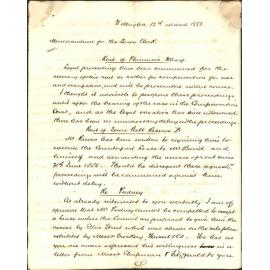 Wellington, 12th March 1883.
Memorandum for the Town Clerk
Rent of Wharf
Legal proceedings have been commenced for the
recovery of this rent or rather for compensation for use
and occupation, and will be proceeded with of course.
I thought it advisable to postpone these proceedings
until after the hearing of the case in the Compensation
Court, and as the legal vacation has since intervened
there has been no unnecessary delay in the proceedings.
Rent of Town Belt Reserve B
Mr has been written to requiring him to
execute the Counterpart Lease to Mr and
himself and demanding the arrears of rent since
30th June 1882. Should he disregard these requests,
proceedings will be commenced against him
without delay.
Re
As already intimated to you verbally I am of
opinion that Mr cannot be compelled to accept
a lease unless the Council are prepared to give him the
access by Street which was shewn on the sale plan
exhibited by Messrs. He has as
you are aware expressed his willingness in a
letter from Messrs Chapman & FitzGerald to you